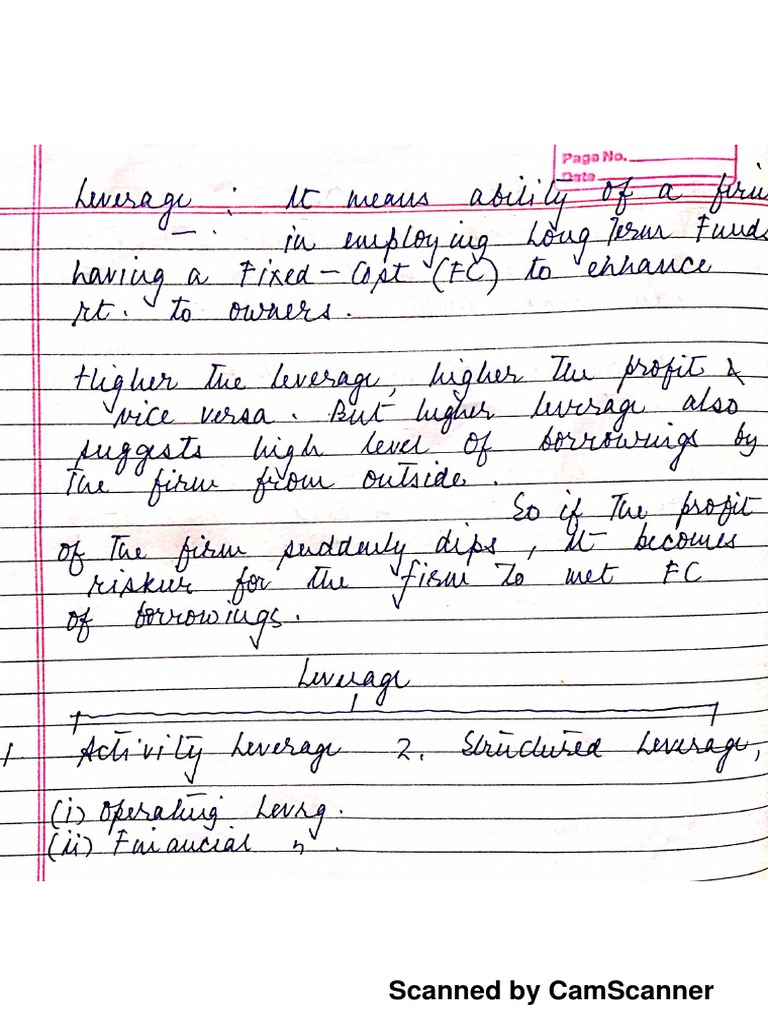 Page No.
Date
Leverage : It means ability of a firm
in employing Long Term Funds
having a Fixed-Cost (FC) to enhance
rt. to owners.
Higher the leverage, higher the profit &
vice versa. But higher leverage also
suggests high level of borrowings by
the firm from outside.
So if the profit
of the firm suddenly dips, it becomes
riskier for the firm to met FC
of borrowings.
Leverage
1 Activity Leverage 2. Structured Leverage,
(i) Operating Levrg.
(ii) Financial " .
Scanned by CamScanner